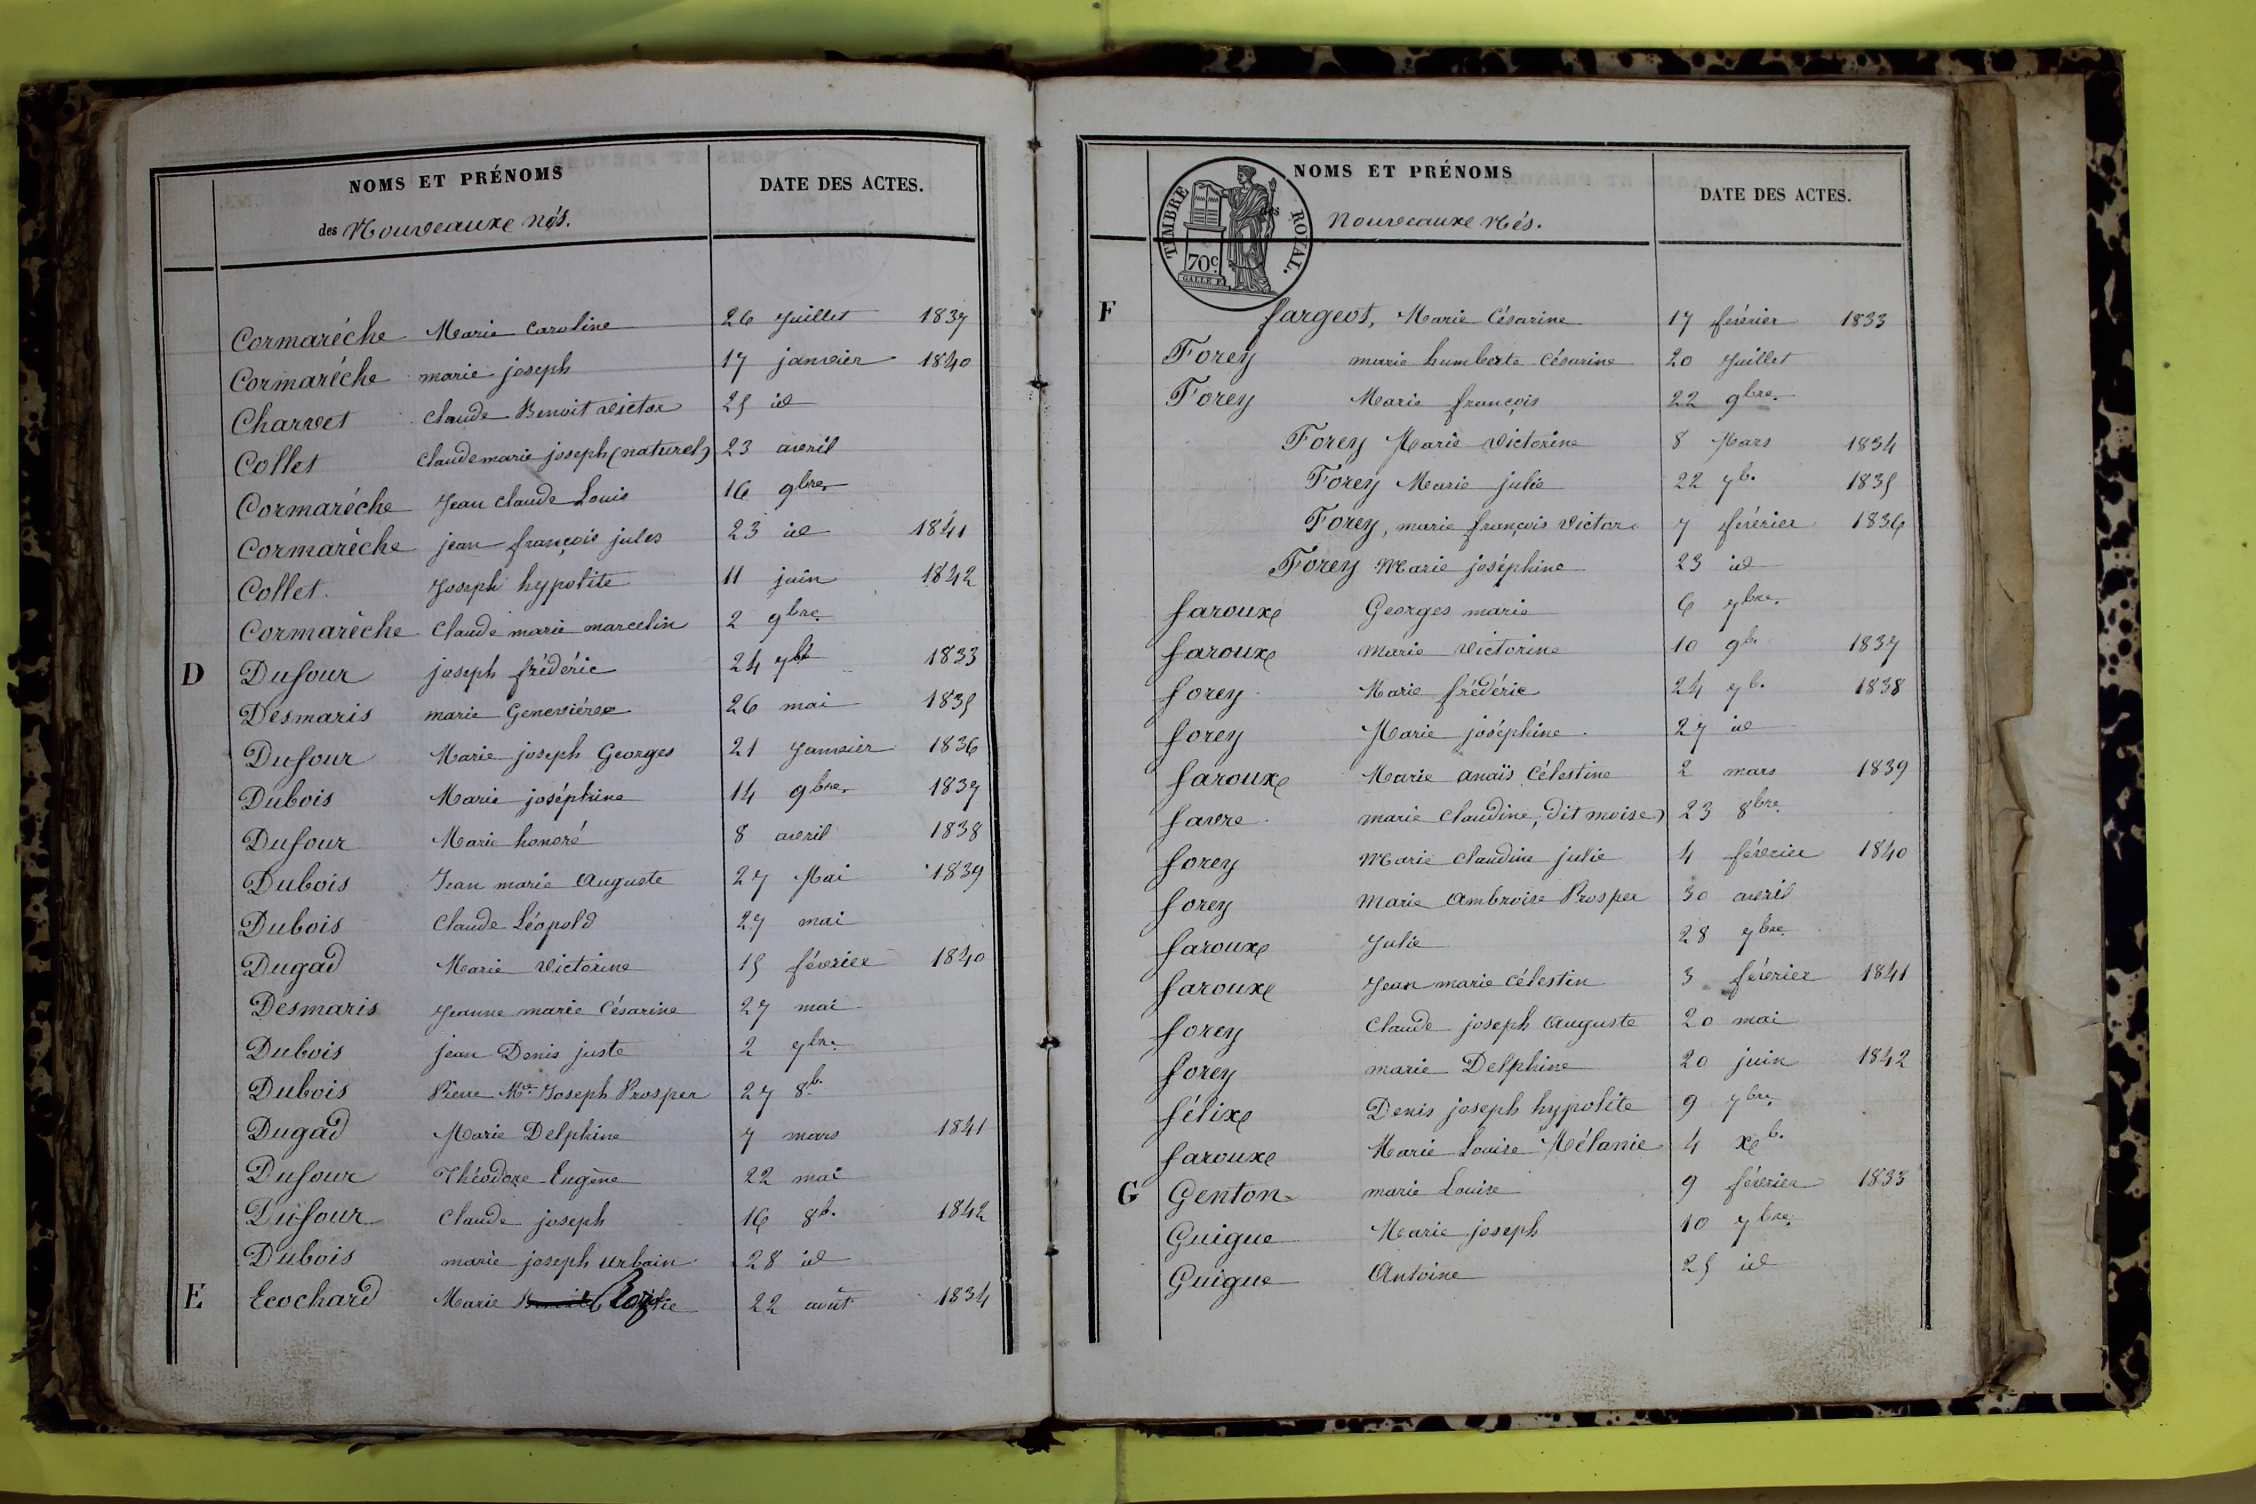 NOMS ET PRÉNOMS
DATE DES ACTES.
des Nouveaux nés.
Cormarêche Marie Caroline 26 Juillet 1837
Cormarêche marie joseph 17 janvier 1840
Charvet Claude Benoit Victor 25 id
Collet Claude marie joseph (naturel) 23 avril
Cormarêche Jean Claude Louis 16 9bre
Cormarêche jean françois jules 23 id 1841
Collet Joseph hypolite 11 juin 1842
Cormarêche Claude marie marcelin 2 9bre
D Dufour joseph frédéric 24 7br 1833
Desmaris marie Geneviève 26 mai 1835
Dufour Marie joseph Georges 21 Janvier 1836
Dubois Marie joséphine 14 9bre 1837
Dufour Marie honoré 8 avril 1838
Dubois Jean marie Auguste 27 Mai 1839
Dubois Claude Léopold 27 mai
Dugad Marie Victorine 15 février 1840
Desmaris Jeanne marie Césarine 27 mai
Dubois jean Denis juste 2 7bre
Dubois Pierre Mie Joseph Prosper 27 8b.
Dugad Marie Delphine 7 mars 1841
Dufour Théodore Eugène 22 mai
Dufour Claude joseph 16 8b. 1842
Dubois marie joseph urbain 28 id
E Ecochard Marie 22 août 1834
TIMBRE ROYAL.
70c
GALLE F.
NOMS ET PRÉNOMS
DATE DES ACTES.
des Nouveaux Nés.
F fargeot, Marie Césarine 17 février 1833
Forey marie humberte Césarine 20 Juillet
Forey Marie françois 22 9bre
Forey Marie Victorine 8 Mars 1834
Forey Marie julie 22 7b. 1835
Forey, marie françois Victor 7 février 1836
Forey Marie joséphine 23 id
faroux Georges marie 6 7bre.
faroux Marie Victorine 10 9b. 1837
forey Marie frédéric 24 7b. 1838
forey Marie joséphine 27 id
faroux Marie anaïs Célestine 2 mars 1839
favre marie Claudine, dit moise) 23 8bre
forey Marie Claudine julie 4 février 1840
forey Marie Ambroise Prosper 30 avril
faroux Julie 28 7bre
faroux Jean marie Célestin 3 février 1841
forey Claude joseph Auguste 20 mai
forey marie Delphine 20 juin 1842
félix Denis joseph hypolite 9 7bre
faroux Marie Louise Mélanie 4 xb.
G Genton marie Louise 9 février 1833
Guigue Marie joseph 10 7bre
Guigue Antoine 25 id